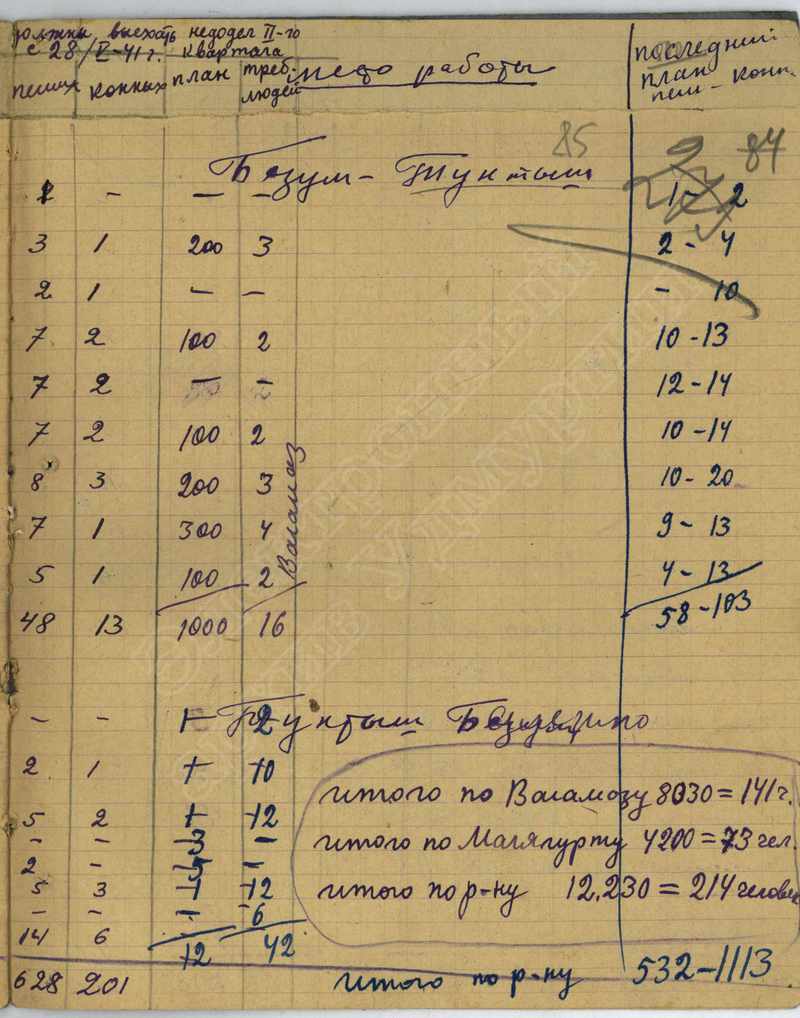 должны выехать недодел II-го
с 28/V-41 г. квартала
пеших конных план треб. людей место работы последний план пеш - конн.
85 84
Безум - Туктым
1 - - - 1 - 2
3 1 200 3 2 - 4
2 1 - - - 10
7 2 100 2 10 - 13
7 2 - - 12 - 14
7 2 100 2 10 - 14
8 3 200 3 10 - 20
7 1 300 4 9 - 13
5 1 100 2 4 - 13
Валамаз
48 13 1000 16 58 - 103
- - 2
2 1 + 10
итого по Валамазу 8030 = 141 ч.
5 2 + 12
- - -
итого по Магягурту 4200 = 73 чел.
2 - -
5 3 + 12
итого по р-ну 12,230 = 214 человек
- - 6
14 6 12 42
628 201 итого по р-ну 532 - 1113